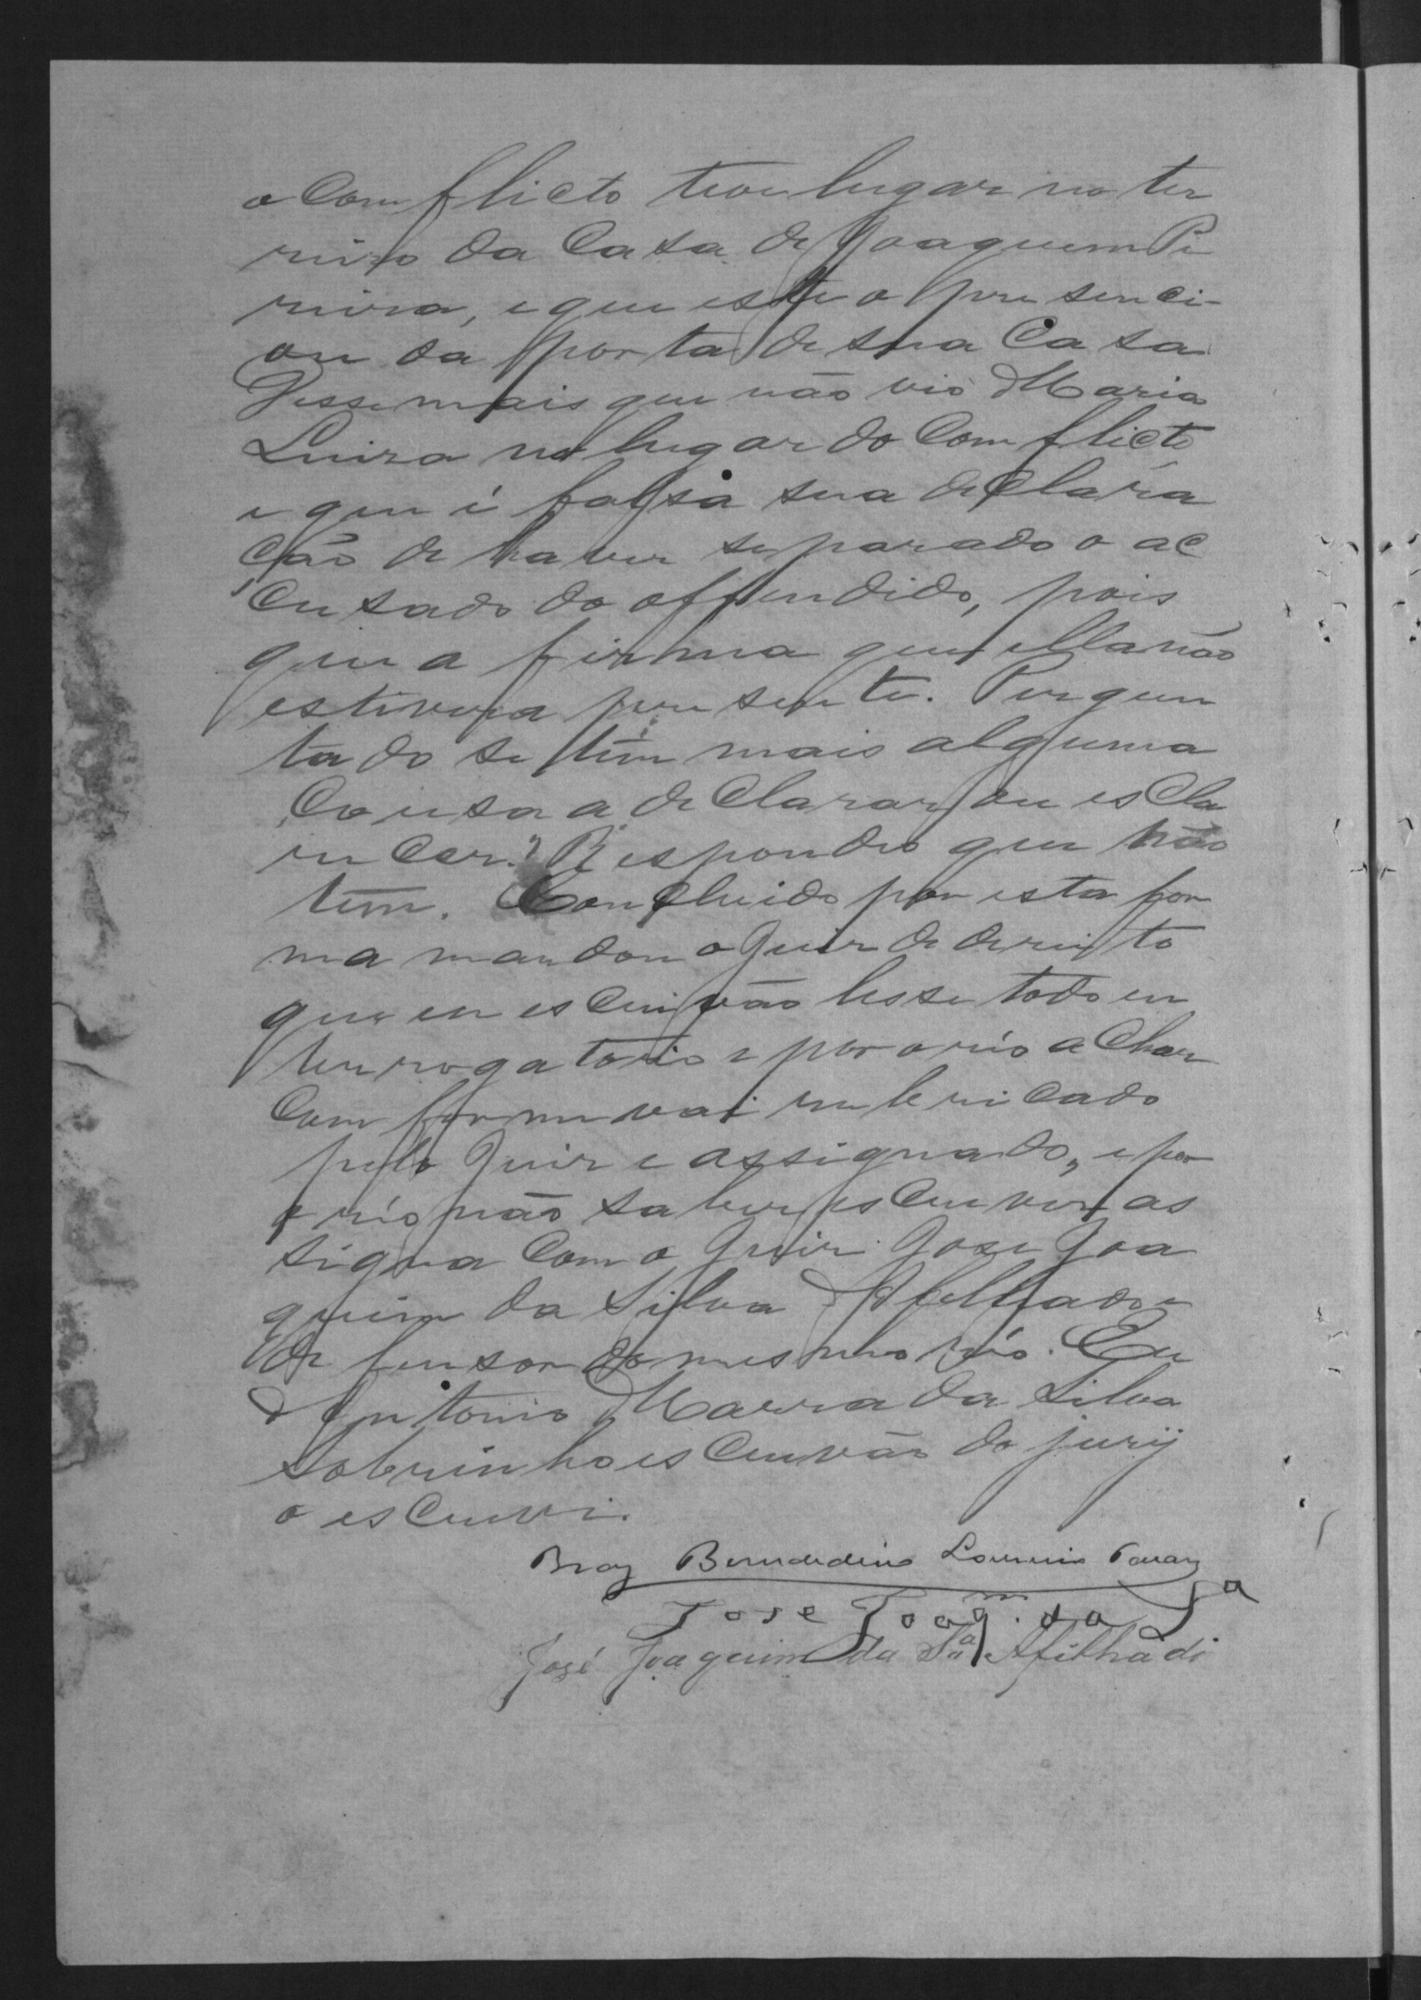 o comflicto teve lugar no ter
reiro da Casa de Joaquem Pe
reira, e que este o presenci-
ou da porta de sua Casa
Desse mais que não vio Maria
Luiza no lugar do Comflicto
e que é falsa sua declara
ção de haver separado o ac
cusado do offendido, pois
que a firma que ella não
estivera presente. Pergun
tado se têm mais alguma
Cousa a declarar ou escla
recer? Respondeo que não
têm. Concluido por esta for
ma mandou o Juiz de dereito
que eu escrivão lesse todo en
terrogatorio e por o réo achar
Comforme vai rubericado
pelo Juiz e assignado, e por
o réo não saber escrever as
signa com o Juiz José Joa
quim da Silva Afilhado
defensor do mesmo réo. Eu
Antonio Marra da Silva
Sobrinho escrivão do jury
o escrevi.
Braz Bernardino Loureiro Tavares
Jose Joaqm. da Sa
José Joaquim da Sa Afilhado